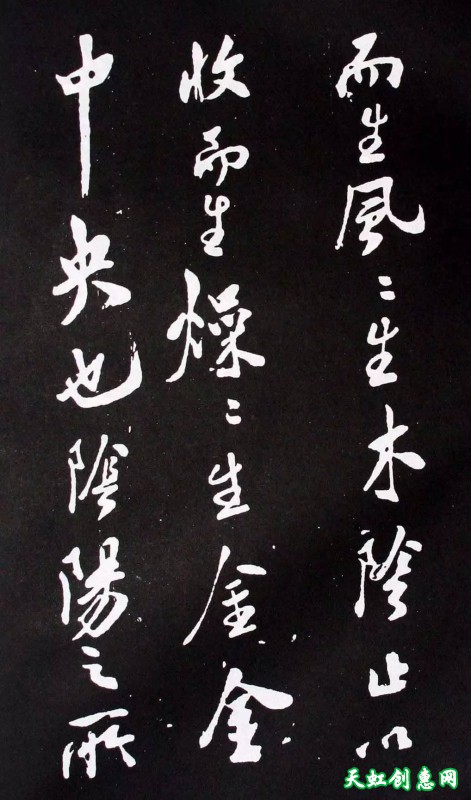 而生風〻生木陰止以
收而生燥〻生金金
中央也陰陽之所
天虹创惠网